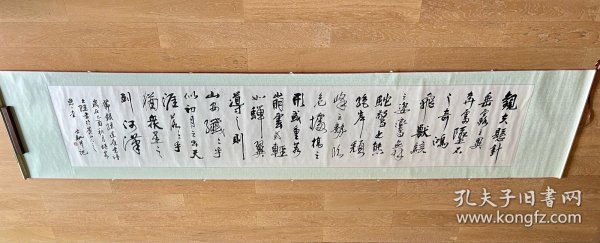 觀夫懸針
垂露之異
奔雷墜石
之奇鴻
飛獸駭
之姿鸞舞
蛇驚之態
絕岸頹
峰之勢臨
危據槁之
形或重若
崩雲或輕
如蟬翼
導之則
山安纖纖乎
似初月之出天
涯落落乎
猶衆星之
列河漢
孔夫子旧书网
www.kongfz.com